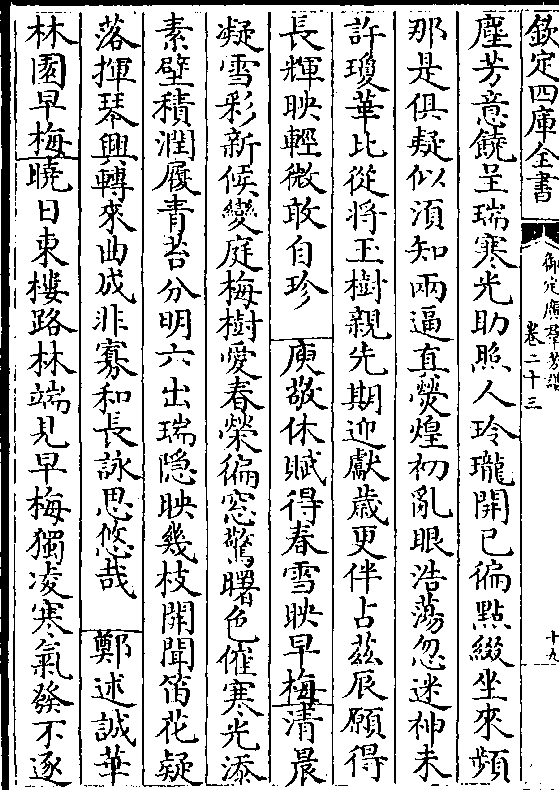 欽定四庫全書
御定廣羣芳譜
卷二十三
十九
塵芳意饒呈瑞寒光助照人玲瓏開已徧㸃綴坐來頻
那是俱疑似須知兩逼真熒煌初亂眼浩蕩忽迷神未
許瓊華比從將玉樹親先期迎獻歳更伴占兹辰願得
長輝映輕微敢自珍　庾敬休賦得春雪映早梅清晨
凝雪彩新候變庭梅樹愛春榮徧窓驚曙色催寒光添
素壁積潤履青苔分明六出瑞隠映幾枝開聞笛花疑
落揮琴興轉來曲成非寡和長詠思悠哉　鄭述誠華
林園早梅曉日東樓路林端見早梅獨凌寒氣發不逐